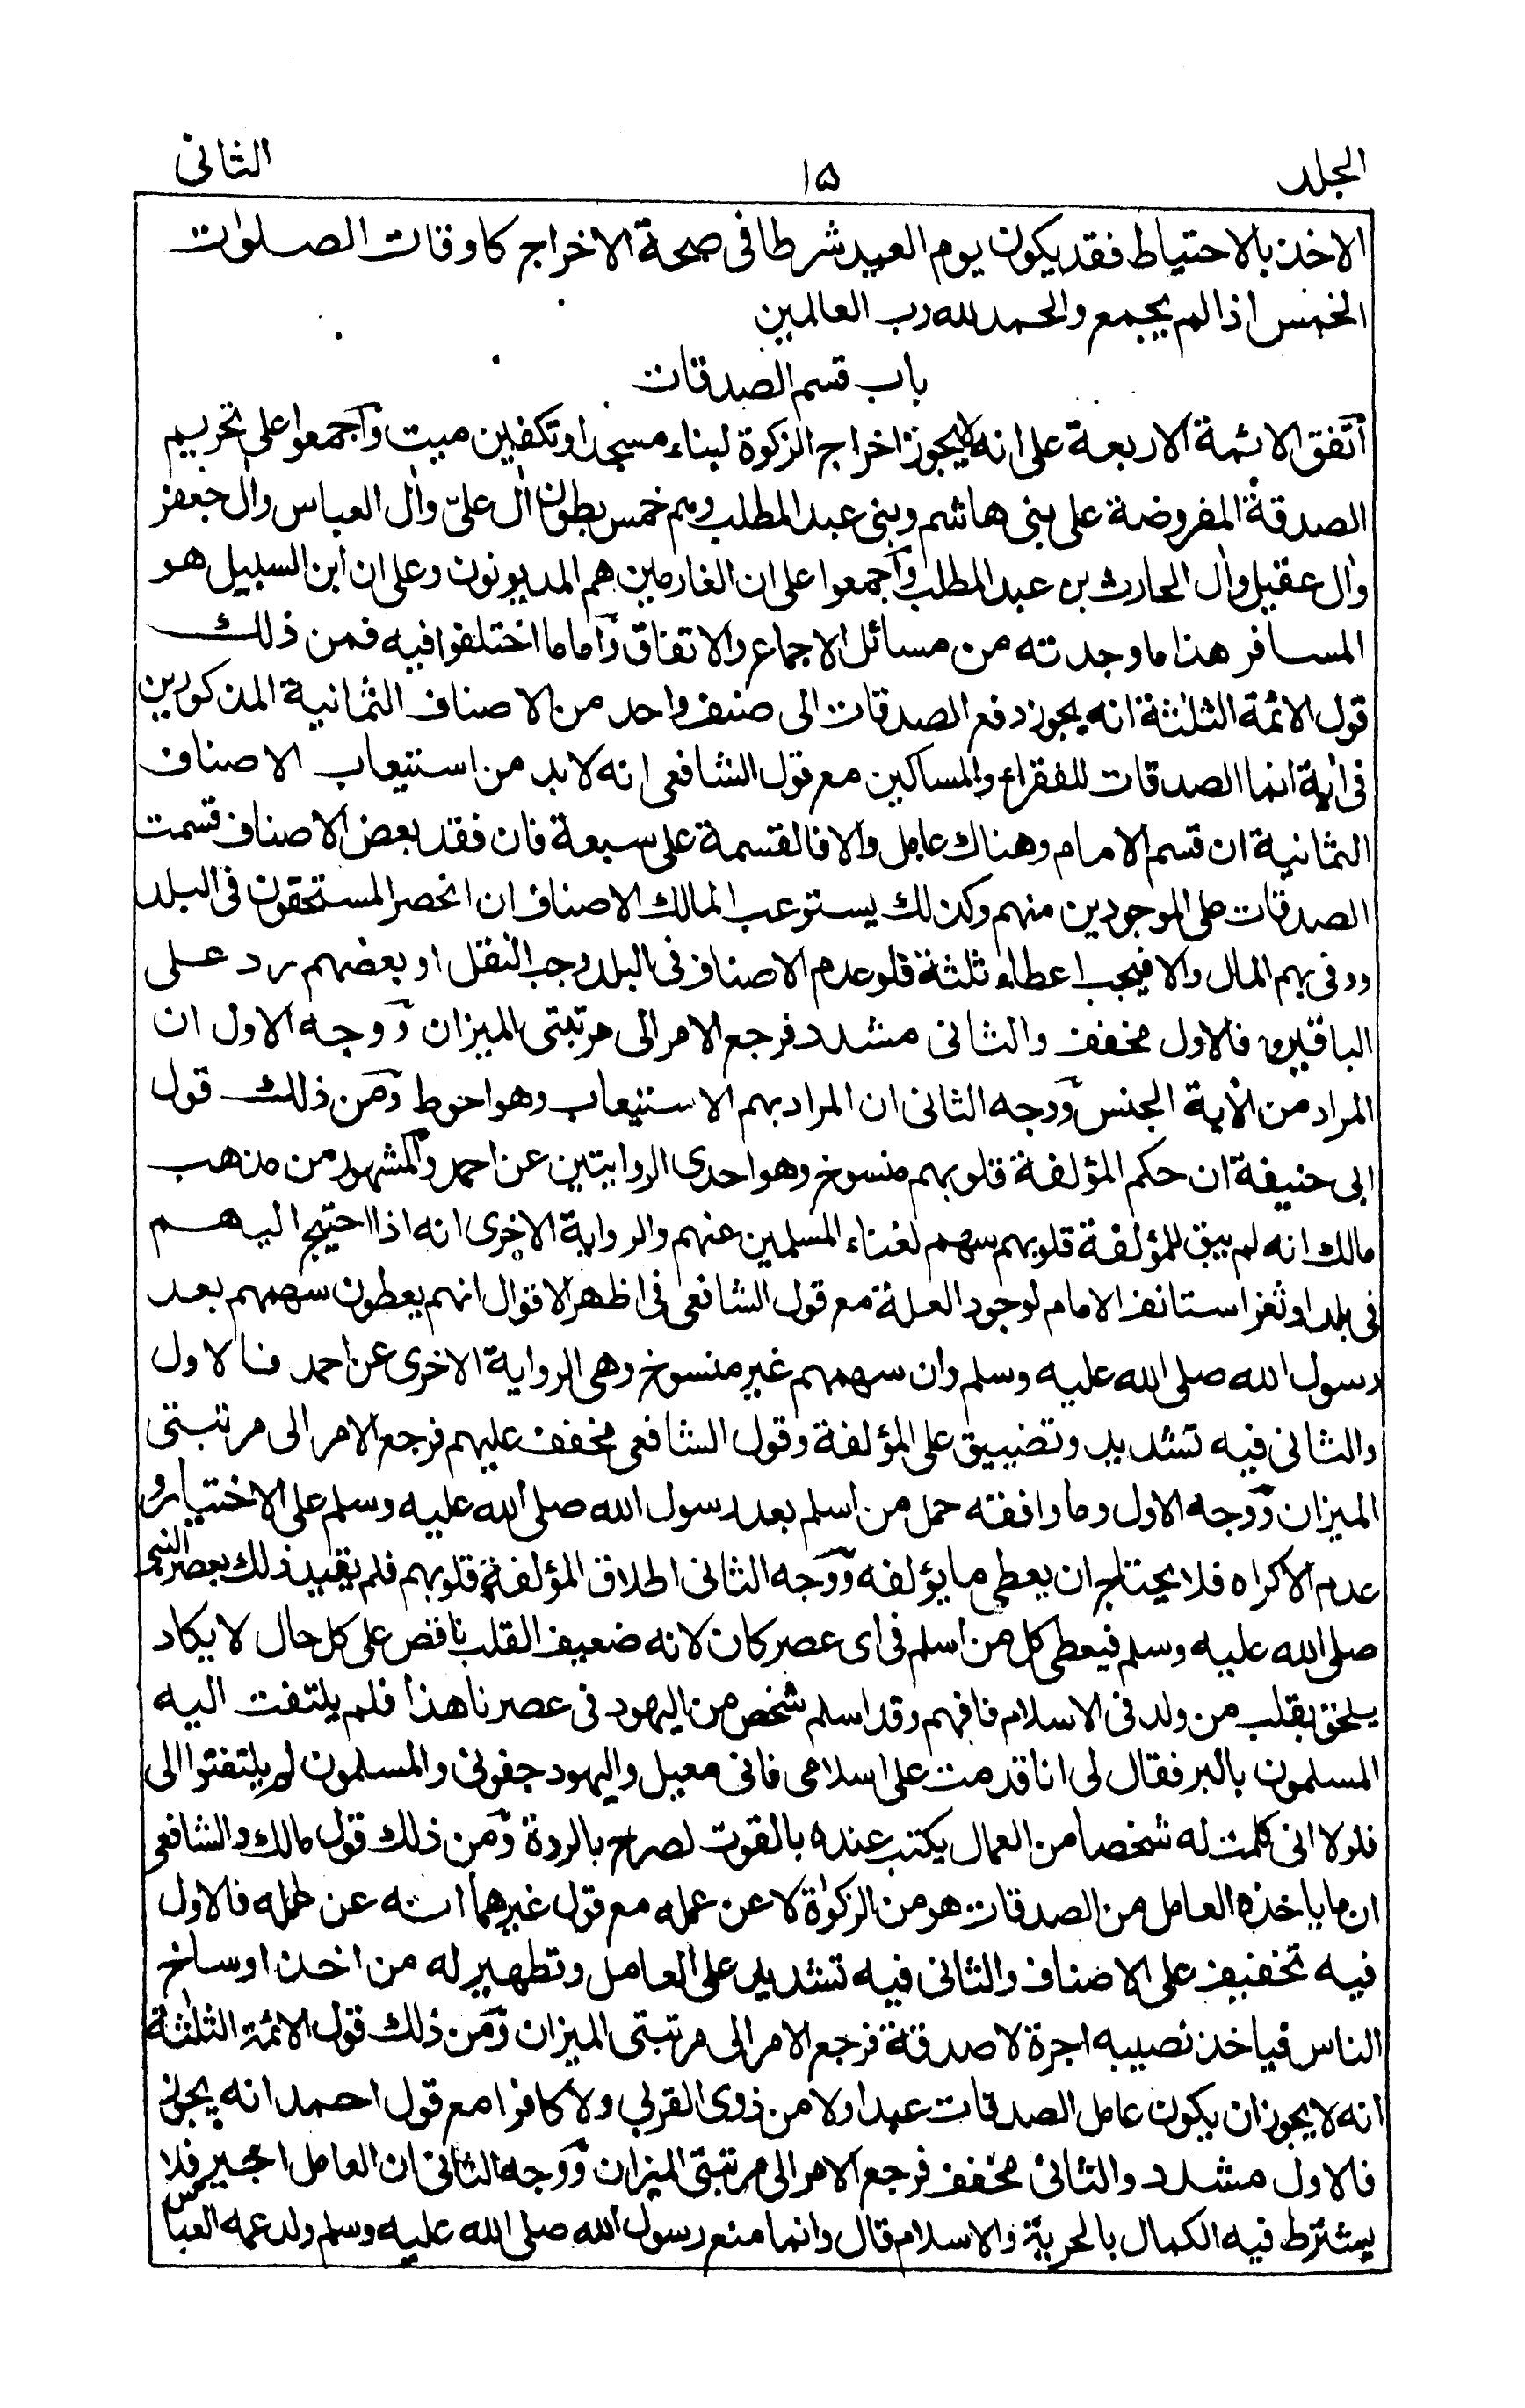 الجلد ١٥ الثانى
الاخذ بالاحتياط فقد يكون يوم العيد شرطا فى صحة الاخراج كاوقات الصلوٰت
الخمس اذا لم يجمع والحمد لله رب العالمين
باب قسم الصدقات
اتفق الائمة الاربعة على انه لا يجوز اخراج الزكوة لبناء مسجد او تكفين ميت واجمعوا على تحريم
الصدقة المفروضة على بنى هاشم وبنى عبد المطلب وهم خمس بطون اٰل علىّ واٰل العباس واٰل جعفر
واٰل عقيل واٰل الحارث بن عبد المطلب واجمعوا على ان الغارمين هم المديونون وعلى ان ابن السبيل هو
المسافر هذا ما وجدته من مسائل الاجماع والاتفاق واما ما اختلفوا فيه فمن ذلك
قول الائمة الثلٰثة انه يجوز دفع الصدقات الى صنف واحد من الاصناف الثمانية المذكورين
فى اٰية انما الصدقات للفقراء والمساكين مع قول الشافعى انه لا بد من استيعاب الاصناف
الثمانية ان قسم الامام وهناك عامل والا فالقسمة على سبعة فان فقد بعض الاصناف قسمت
الصدقات على الموجودين منهم وكذلك يستوعب المالك الاصناف ان انحصر المستحقون فى البلد
ووفى بهم المال والا فيجب اعطاء ثلثة فلو عدم الاصناف فى البلد وجب النقل او بعضهم رد على
الباقين فالاول مخفف والثانى مشدد فرجع الامر الى مرتبتى الميزان ووجه الاول ان
المراد من الاٰية الجنس ووجه الثانى ان المراد بهم الاستيعاب وهو احوط ومن ذلك قول
ابى حنيفة ان حكم المؤلفة قلوبهم منسوخ وهو احدى الروايتين عن احمد والمشهور من مذهب
مالك انه لم يبق للمؤلفة قلوبهم سهم لغناء المسلمين عنهم والرواية الاخرى انه اذا احتيج اليهم
فى بلد او ثغر استانف الامام لوجود العلة مع قول الشافعى فى اظهر الاقوال انهم يعطون سهمهم بعد
رسول الله صلى الله عليه وسلم وان سهمهم غير منسوخ وهى الرواية الاخرى عن احمد فالاول
والثانى فيه تشديد وتضييق على المؤلفة وقول الشافعى مخفف عليهم فرجع الامر الى مرتبتى
الميزان ووجه الاول وما وافقته حمل من اسلم بعد رسول الله صلى الله عليه وسلم على الاختيار و
عدم الاكراه فلا يحتاج ان يعطى ما يؤلفه ووجه الثانى اطلاق المؤلفة قلوبهم فلم يقيد ذلك بعصر النبى
صلى الله عليه وسلم فيعطى كل من اسلم فى اى عصر كان لانه ضعيف القلب ناقص على كل حال لا يكاد
يلحق بقلب من ولد فى الاسلام فافهم وقد اسلم شخص من اليهود فى عصرنا هذا فلم يلتفت اليه
المسلمون بالبر فقال لى انا قدمت على اسلامى فانى معيل واليهود جفونى والمسلمون لم يلتفتوا الى
فلولا انى كلمت له شخصا من العمال يكتب عنده بالقوت لصرح بالردة ومن ذلك قول مالك والشافعى
ان ما ياخذه العامل من الصدقات هو من الزكوٰة لا عن عمله مع قول غيرهما انه عن عمله فالاول
فيه تخفيف على الاصناف والثانى فيه تشديد على العامل وتطهير له من اخذ اوساخ
الناس فياخذ نصيبه اجرة لا صدقة فرجع الامر الى مرتبتى الميزان ومن ذلك قول الائمة الثلٰثة
انه لا يجوز ان يكون عامل الصدقات عبدا ولا من ذوى القربى ولا كافرا مع قول احمد انه يجوز
فالاول مشدد والثانى مخفف فرجع الامر الى مرتبتى الميزان ووجه الثانى ان العامل اجير فلا
يشترط فيه الكمال بالحرية والاسلام قال وانما منع رسول الله صلى الله عليه وسلم ولد عمه العباس